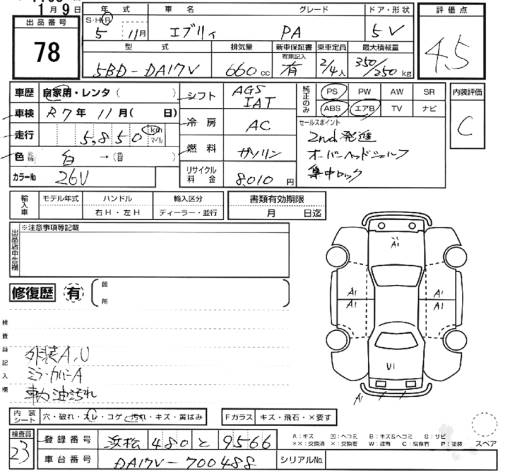 11月9日
出品番号
78
年式
車名
グレード
ドア・形状
評価点
S・H・R
5 11月
エブリィ
PA
5V
4.5
型式
排気量
新車保証書
有無記入
乗車定員
最大積載量
5BD-DA17V
660cc
有
2/4人
350/250kg
車歴
自家用・レンタ
シフト
AGS
IAT
純正のみ
PS
PW
AW
SR
ABS
エアB
TV
ナビ
内装評価
C
車検
R7年11月(日)
冷房
AC
セールスポイント
2nd発進
オーバーヘッドシェルフ
集中ロック
走行
5,850
km
マイル
燃料
ガソリン
色
白→
カラーNo
26V
リサイクル料金
8010円
輸入車
モデル年式
ハンドル
右H・左H
輸入区分
ディーラー・並行
書類有効期限
月 日迄
※注意事項等記載
修復歴
有
箇所
検査員記入欄
外装A,U
ミラーカバーA
車内油汚れ
A1
A1
A1
A1
A1
U1
内装シート
穴・破れ・コゲ・汚れ・キズ・黄ばみ
Fガラス
キズ・飛石・×要す
スペア
検査員
23
登録番号
浜松 480 と 9566
A:キズ
B:キズ&ヘコミ
車台番号
DA17V-700488
シリアルNo.